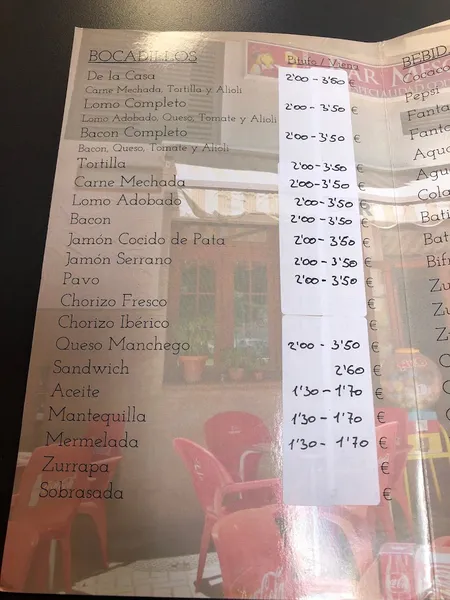 BOCADILLOS Pitufo / Viena
De la Casa 2'00 - 3'50 €
Carne Mechada, Tortilla y Alioli
Lomo Completo 2'00 - 3'50 €
Lomo Adobado, Queso, Tomate y Alioli
Bacon Completo 2'00 - 3'50 €
Bacon, Queso, Tomate y Alioli
Tortilla 2'00 - 3'50 €
Carne Mechada 2'00 - 3'50 €
Lomo Adobado 2'00 - 3'50 €
Bacon 2'00 - 3'50 €
Jamón Cocido de Pata 2'00 - 3'50 €
Jamón Serrano 2'00 - 3'50 €
Pavo 2'00 - 3'50 €
Chorizo Fresco €
Chorizo Ibérico €
Queso Manchego 2'00 - 3'50 €
Sandwich 2'60 €
Aceite 1'30 - 1'70 €
Mantequilla 1'30 - 1'70 €
Mermelada 1'30 - 1'70 €
Zurrapa €
Sobrasada €
BEBID
Cocaco
Pepsi
Fanta
Fanta
Aqua
Agu
Cola
Bati
Bat
Bif
Zu
Zu
Z